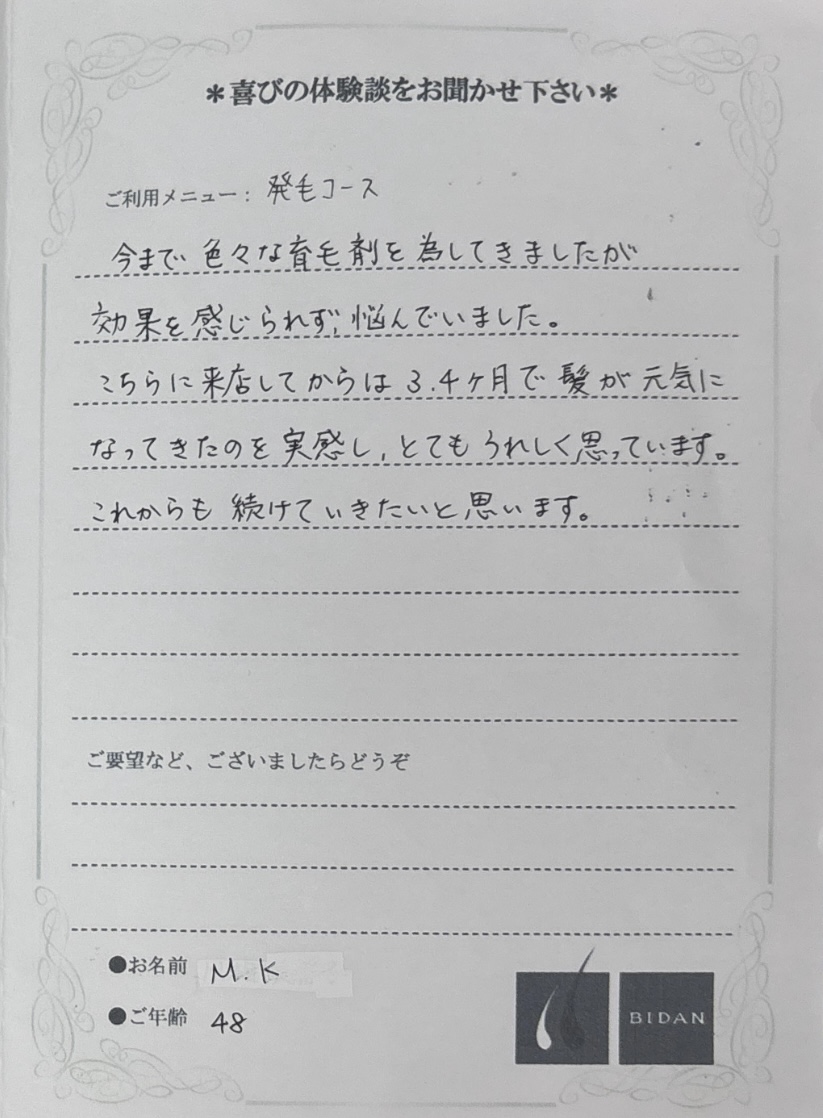 ＊喜びの体験談をお聞かせ下さい＊
ご利用メニュー： 発毛コース
今まで 色々な育毛剤を為してきましたが
効果を感じられず、悩んでいました。
こちらに来店してからは 3.4ヶ月で 髪が 元気に
なってきたのを 実感し、とてもうれしく思っています。
これからも 続けていきたいと思います。
ご要望など、ございましたらどうぞ
●お名前 M.K
●ご年齢 48
BIDAN